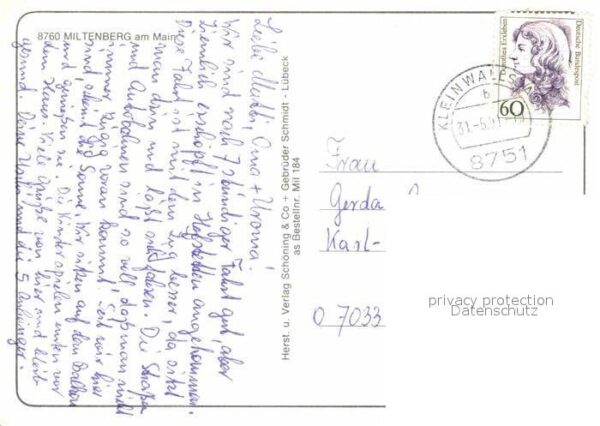 8760 MILTENBERG am Main
Liebe Mutti, Oma + Uroma!
Wir sind nach 7 stündiger Fahrt gut, aber
ziemlich erschöpft in angekommen.
Diese Fahrt ist mit dem Zug besser, da sitzt
man drin und läßt sich fahren. Die Straßen
und Autobahnen sind so voll, daß man nicht
immer zügig voran kommt. Seit wir hier
sind, scheint die Sonne. Wir sitzen auf dem Balkon
und genießen sie. Die Kinder spielen unten vor
dem Haus. Viele Grüße von hier und bleib
gesund. Deine und die 5
Herst. u. Verlag Schöning & Co + Gebrüder Schmidt - Lübeck
as Bestellnr. Mil 184
Deutsche Bundespost
Dorothea Erxleben
60
KLEINWALLSTADT
b
31.-5.91
8751
Frau
Gerda
Karl-
O 7033
privacy protection
Datenschutz